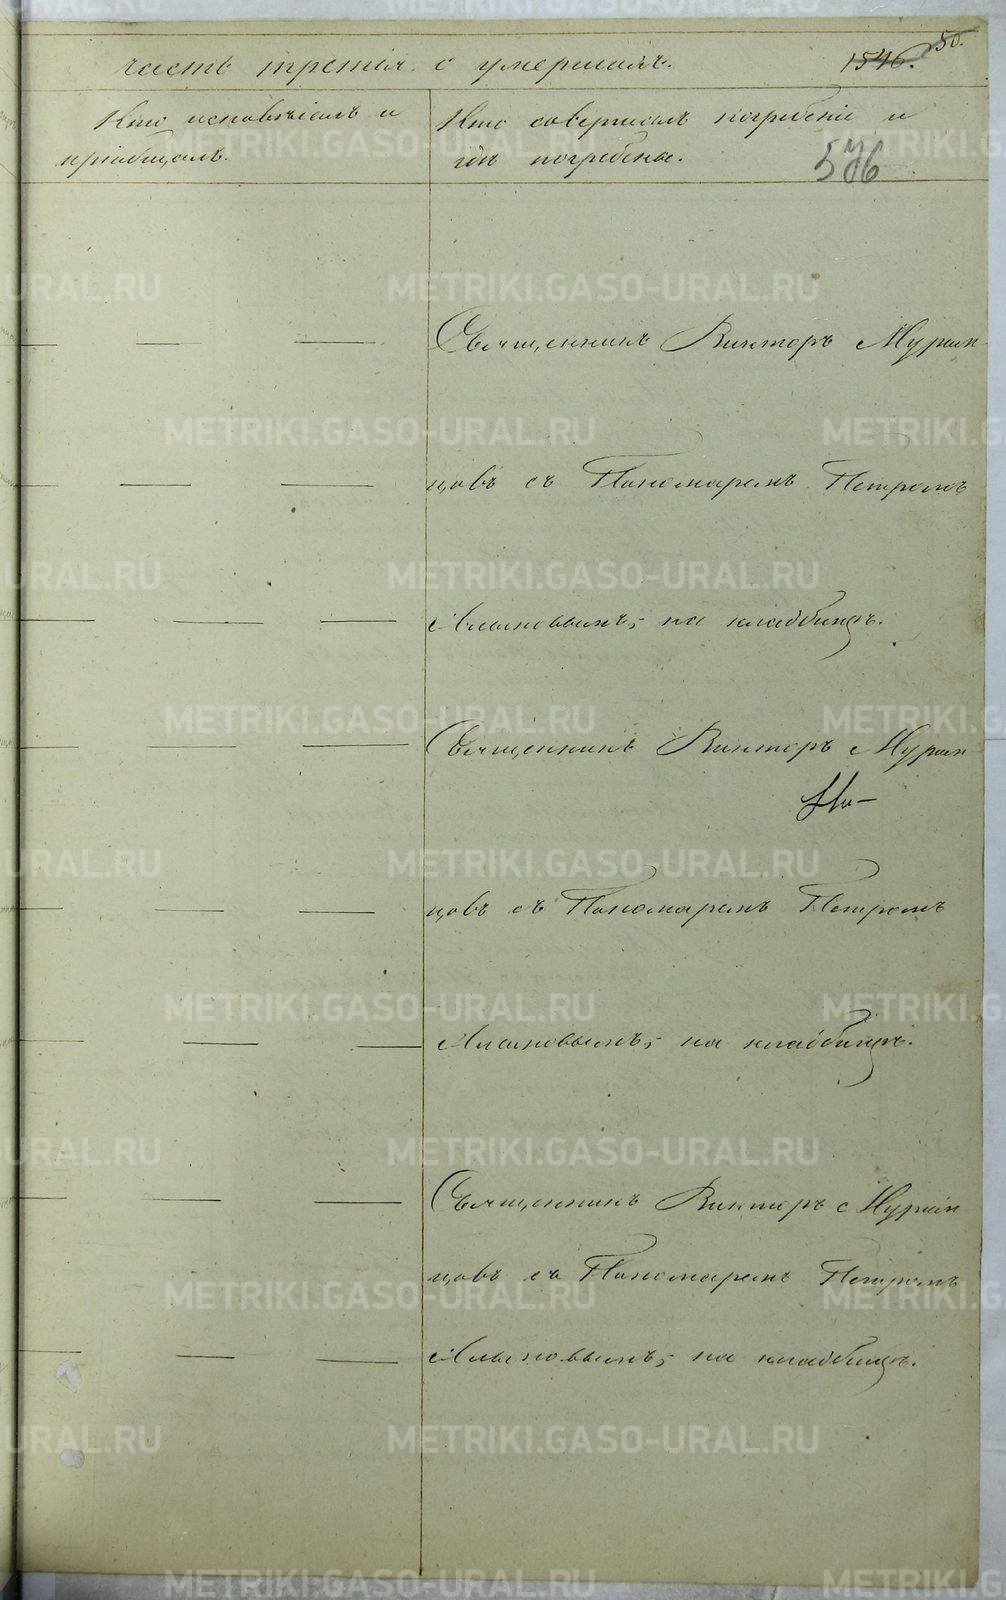 часть третья, о умершихъ.
1546. 50.
Кто исповѣдалъ и
пріобщалъ.
Кто совершалъ погребеніе и
гдѣ погребены.
576
Священникъ Викторъ Мурзин
цовъ съ Пономаремъ Петромъ
на кладбищѣ.
Священникъ Викторъ Мурзин
цовъ съ Пономаремъ Петромъ
на кладбищѣ.
Священникъ Викторъ Мурзин
цовъ съ Пономаремъ Петромъ
на кладбищѣ.
METRIKI.GASO-URAL.RU